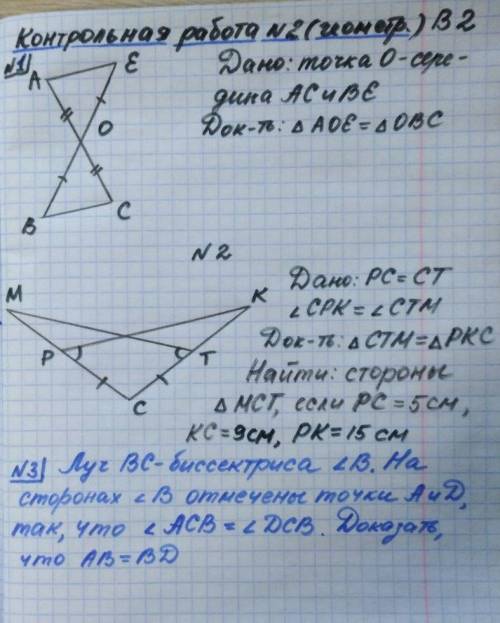 Контрольная работа №2 (геометр.) В2
№1
Дано: точка О-сере-
дина АС и ВЕ
Док-ть: △ АОЕ = △ ОВС
A
E
O
B
C
№2
Дано: PC = CT
∠CPK = ∠CTM
Док-ть: △CTM = △PKC
Найти: стороны
△ MCT, если PC = 5см,
KC = 9см, PK = 15 см
M
K
P
T
C
№3 Луч ВС-биссектриса ∠В. На
сторонах ∠В отмечены точки А и D,
так, что ∠ ACB = ∠ DCB. Доказать,
что AB = BD